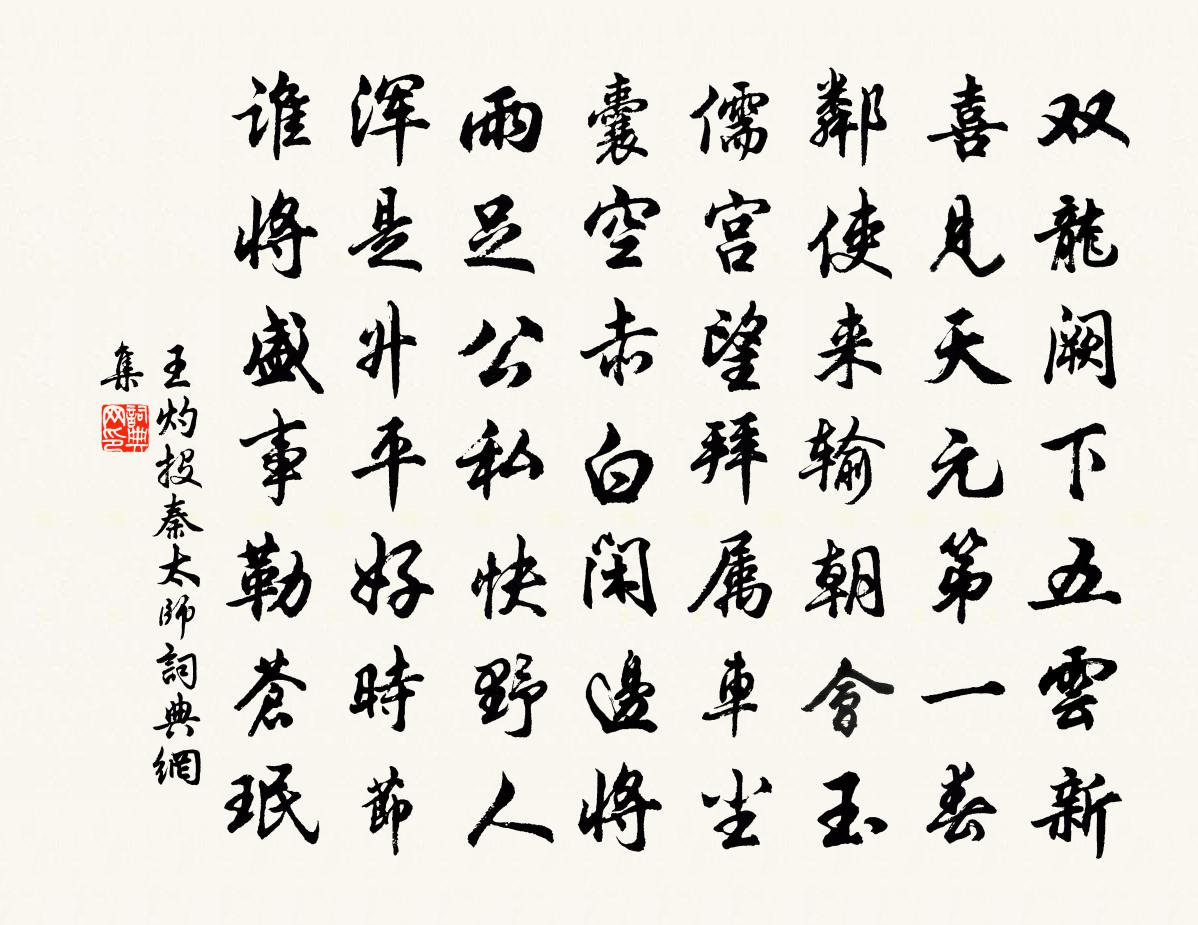 双龍阙下五雲新
喜見天元第一春
鄰使来输朝會玉
儒宫望拜属車尘
囊空赤白閑邊将
雨足公私快野人
浑是升平好時節
谁將盛事勒蒼珉
王灼投秦太師詞典網
集
詞典网印